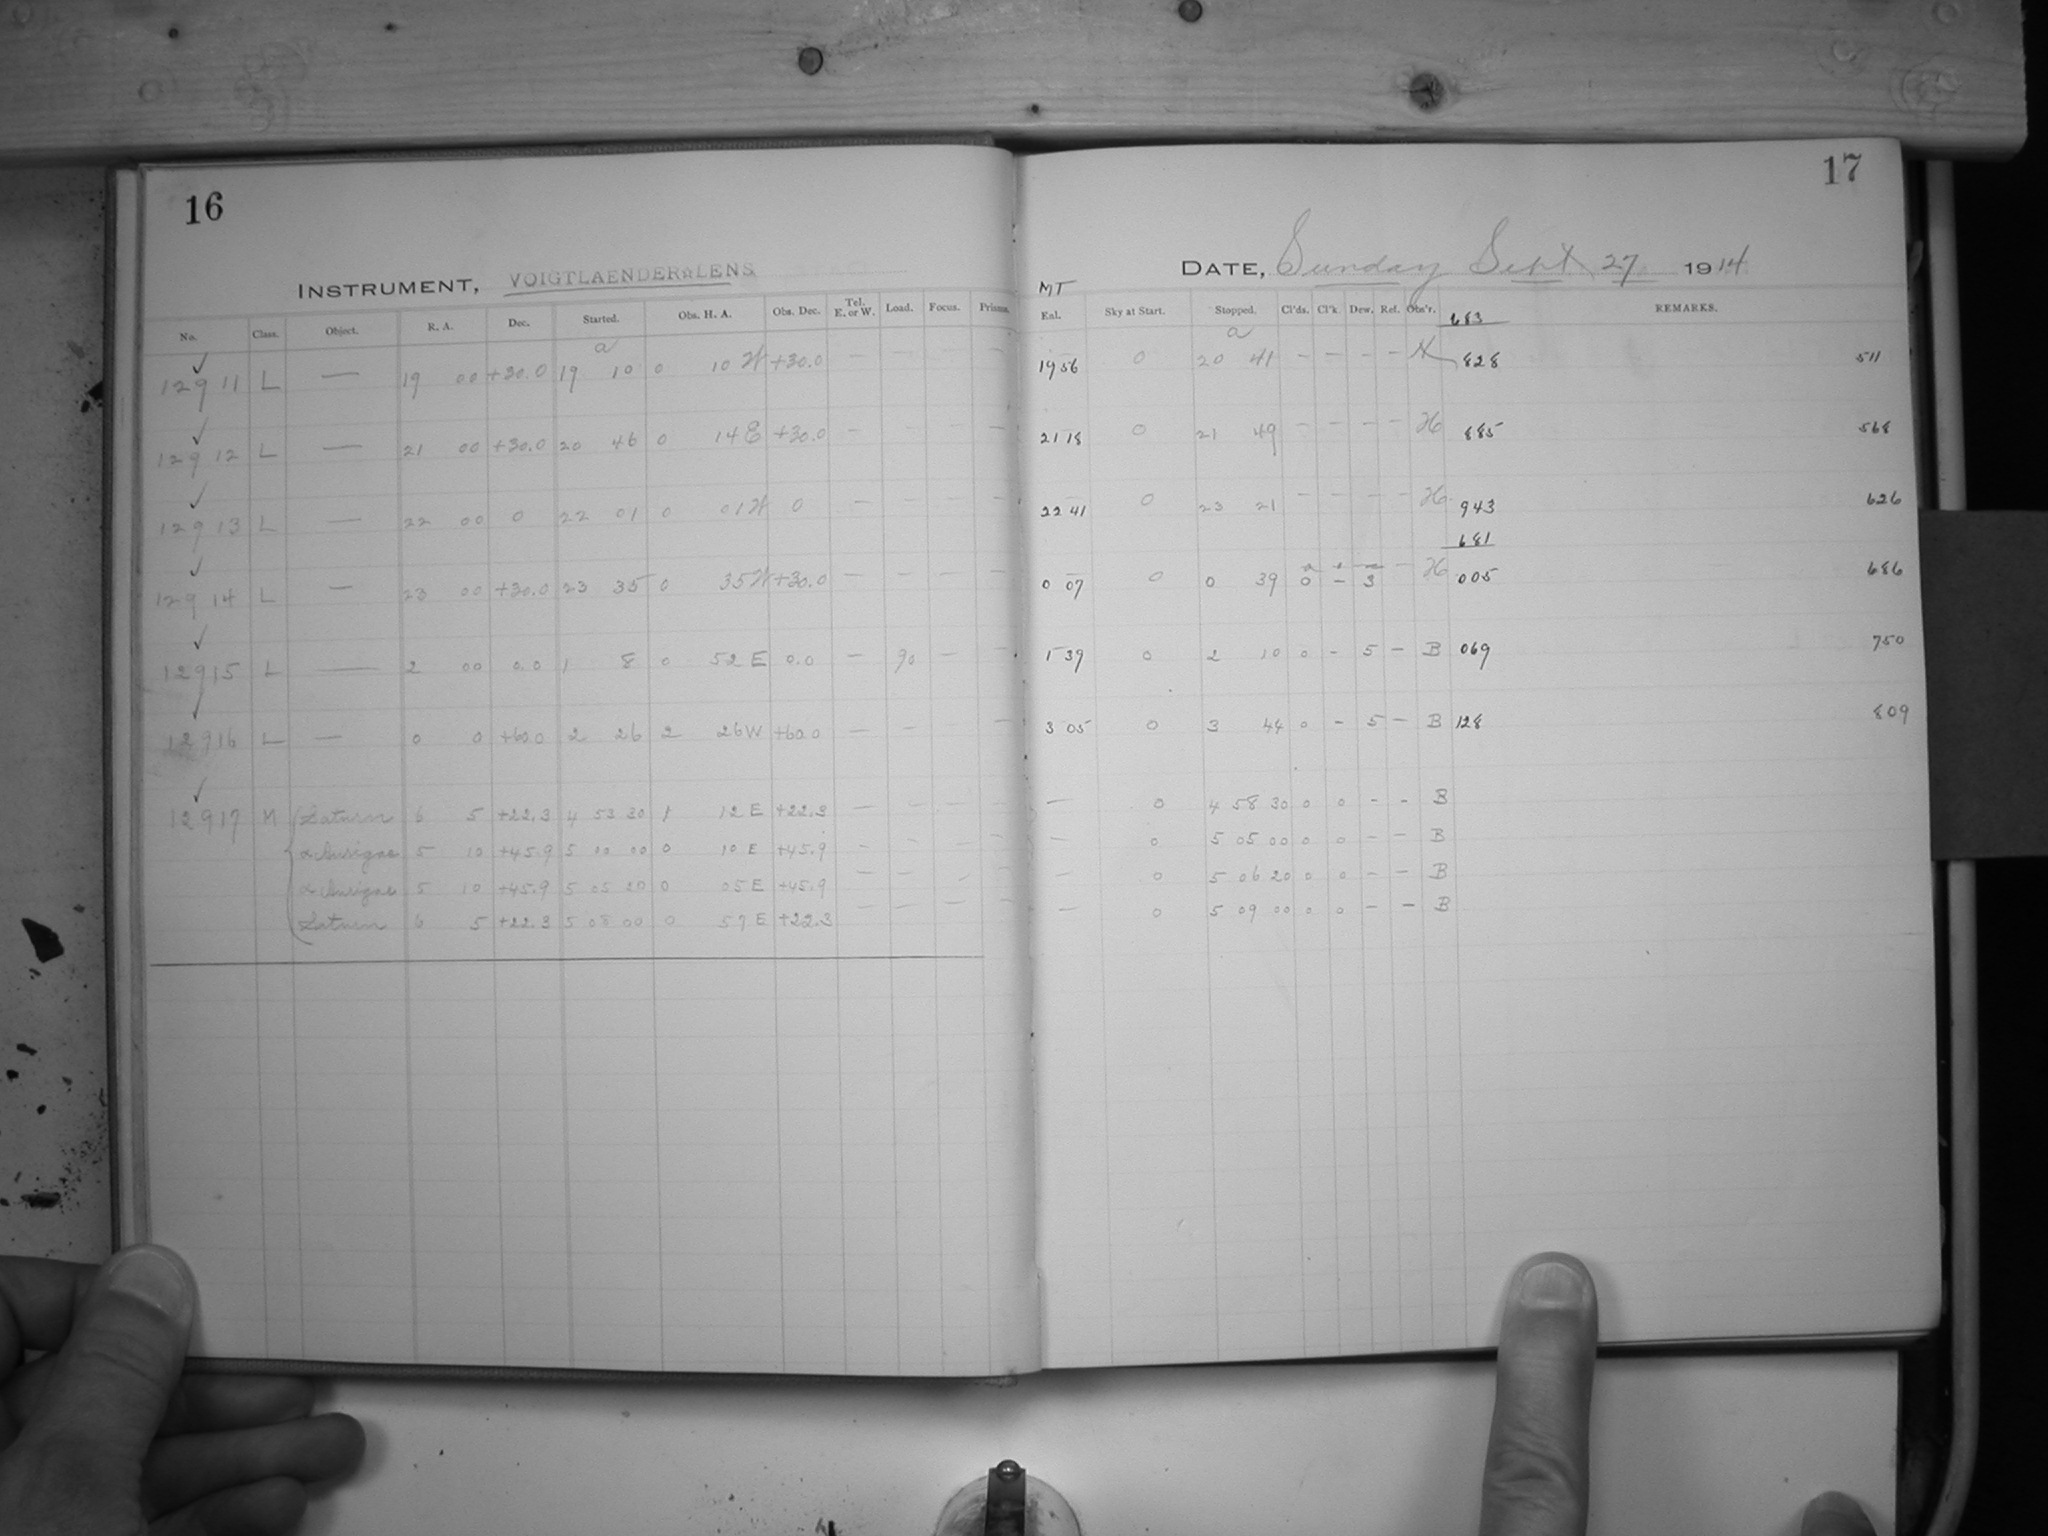 16
INSTRUMENT, VOIGTLAENDER LENS
No. Class. Object. R. A. Dec. Started. Obs. H. A. Obs. Dec. Tel. E. or W. Load. Focus. Prisms.
a
12911 L — 19 00 +30.0 19 10 0 10 W +30.0 — — — —
12912 L — 21 00 +30.0 20 46 0 14 E +30.0 — — — —
12913 L — 22 00 0 22 01 0 01 W 0 — — — —
12914 L — 23 00 +30.0 23 35 0 35 W +30.0 — — — —
12915 L — 2 00 0.0 1 8 0 52 E 0.0 — 90 — —
12916 L — 0 0 +60.0 2 26 2 26 W +60.0 — — — —
12917 M Saturn 6 5 +22.3 4 53 30 1 12 E +22.3 — — — —
α Aurigae 5 10 +45.9 5 00 00 0 10 E +45.9 — — — —
α Aurigae 5 10 +45.9 5 05 20 0 05 E +45.9 — — — —
Saturn 6 5 +22.3 5 08 00 0 57 E +22.3 — — — —
17
DATE, Sunday Sept 27 1914
MT
Enl. Sky at Start. Stopped. Cl'ds. Cl'k. Dew. Ref. Obs'r. REMARKS.
683
a
19 56 0 20 41 — — — — H 828 511
21 18 0 21 49 — — — — H 885 568
22 41 0 23 21 — — — — H 943 626
681
0 07 0 0 39 0 — 3 — H 005 686
1 39 0 2 10 0 — 5 — B 069 750
3 05 0 3 44 0 — 5 — B 128 809
— 0 4 58 30 0 0 — — B
0 5 05 00 0 0 — — B
— 0 5 06 20 0 0 — — B
— 0 5 09 00 0 0 — — B